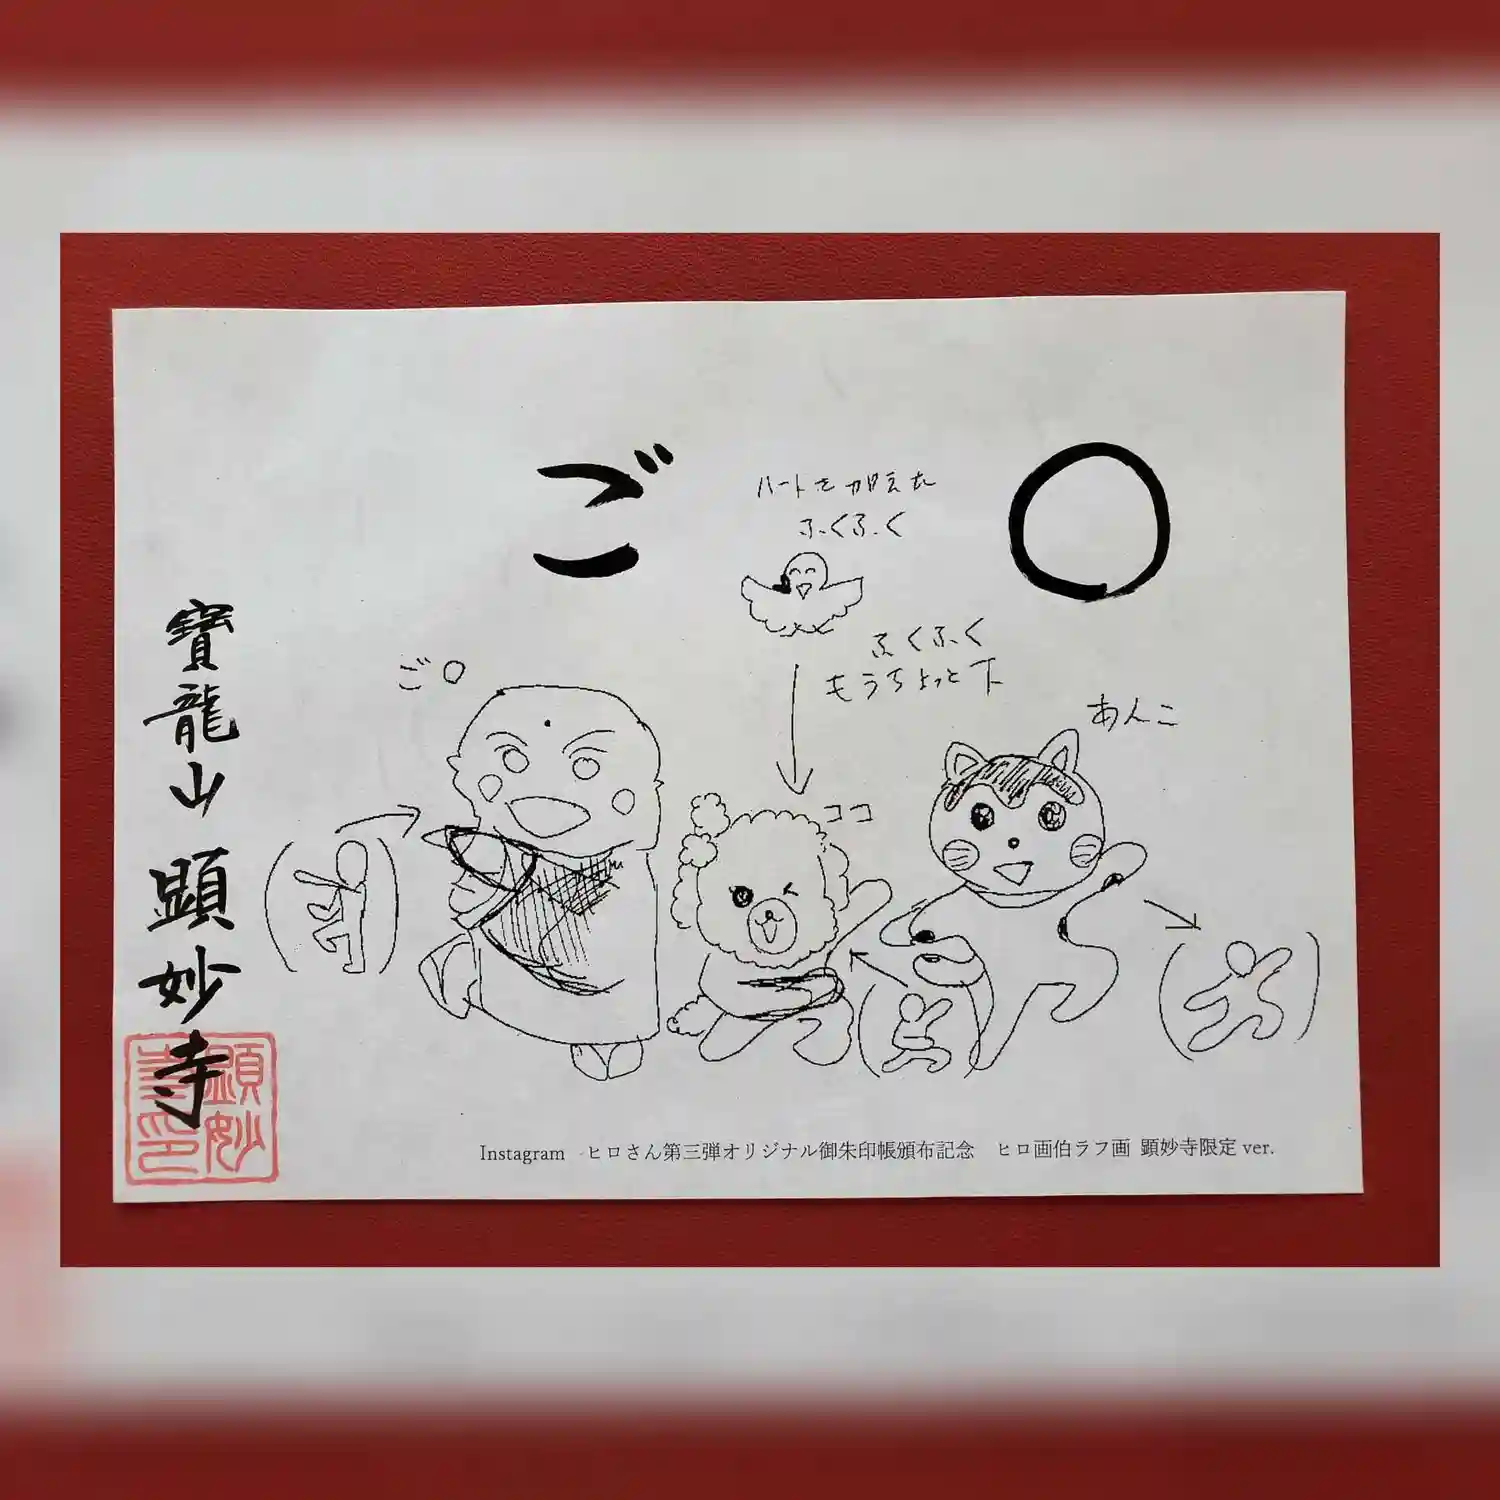 ご ○
ハートを加えた
ふくふく
ふくふく
もうちょっと下
ご○
ココ
あんこ
寶龍山 顕妙寺
顕妙
寺印
Instagram ヒロさん第三弾オリジナル御朱印帳頒布記念 ヒロ画伯ラフ画 顕妙寺限定 ver.